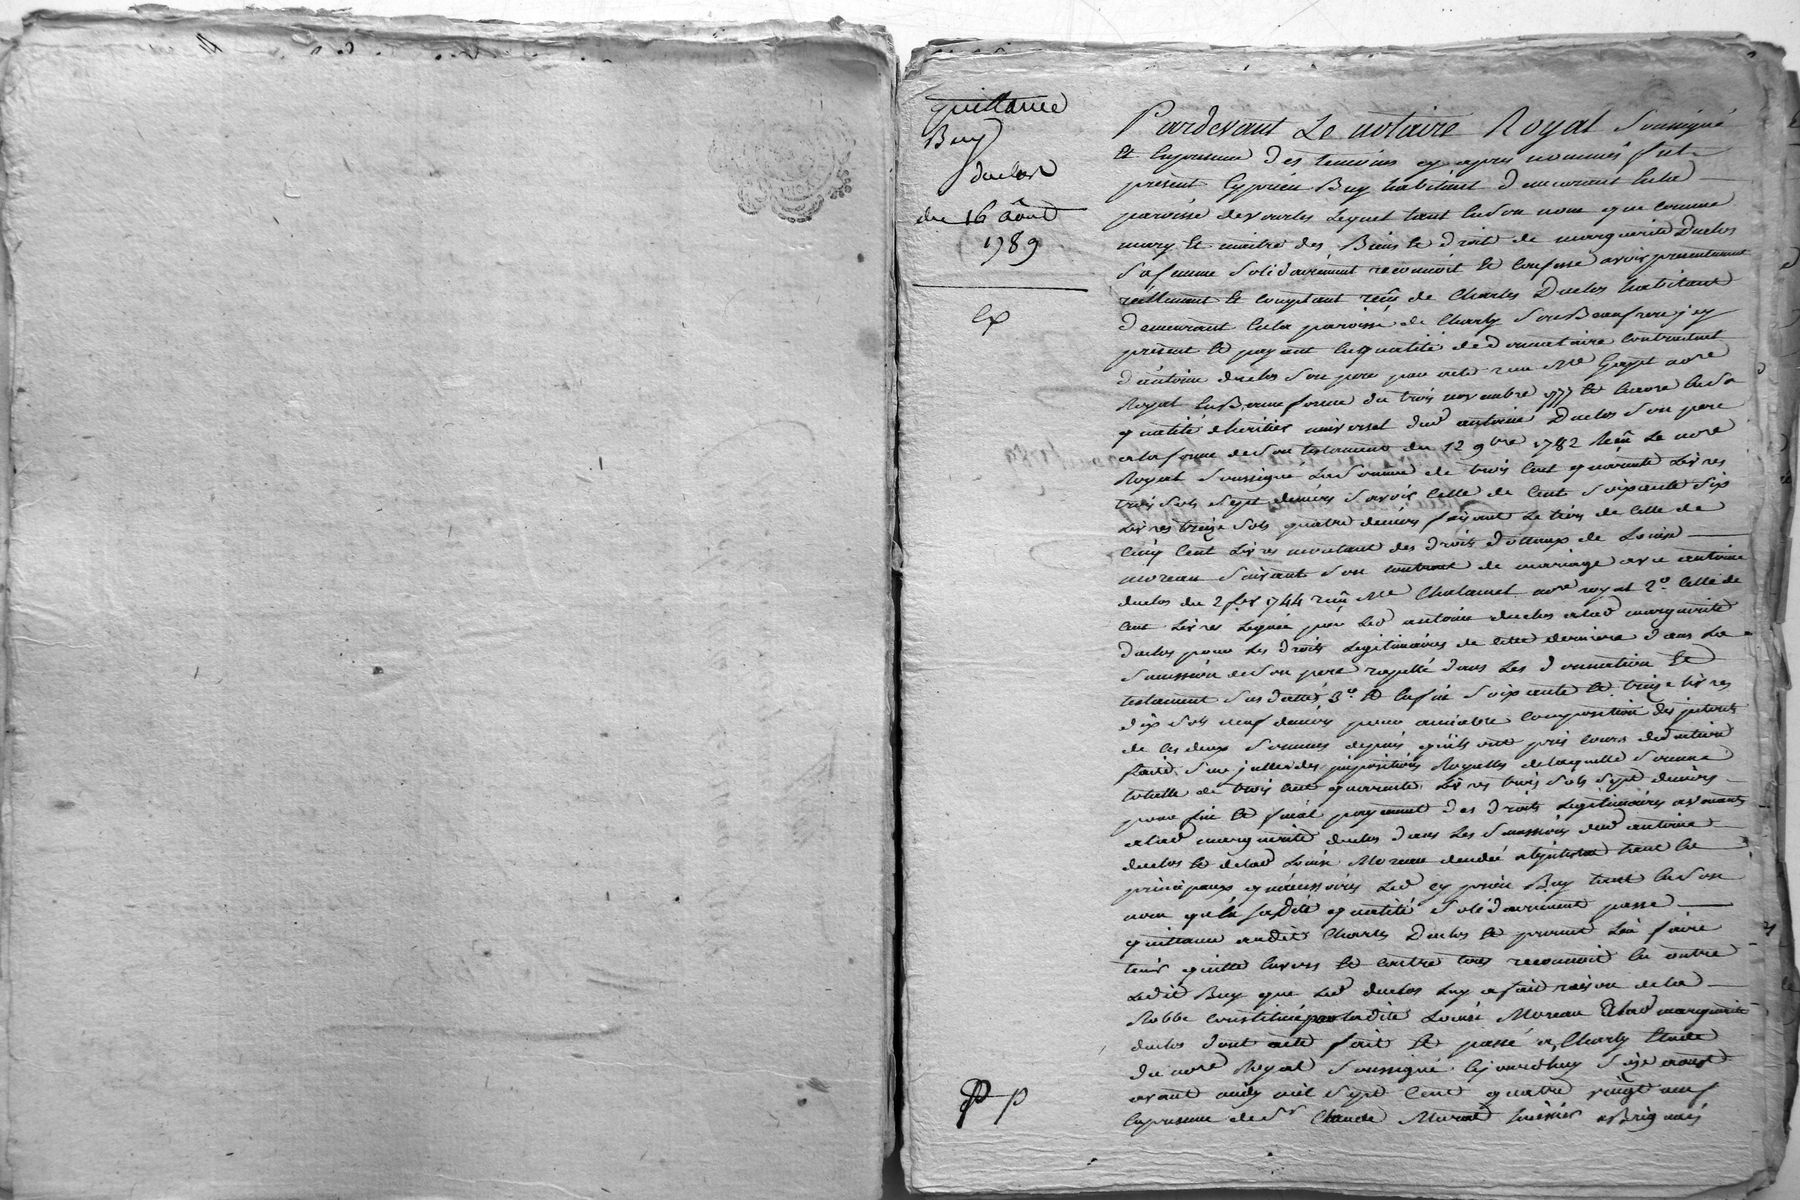 quittance
Buy
duclos
du 16 août
1789
Ex
Pardevant Le notaire Royal Soussigné
Et En presence des temoins cy apres nommés fut
présent Cyprien Buy habitant demeurant En la
paroisse de vourles Lequel tant En Son nom que comme
mary Et maitre des Biens Et droits de marguerite Duclos
Sa femme Solidairement reconnoit Et Confesse avoir presentement
réellement Et Comptant reçu de Charles Duclos habitant
demeurant En la paroisse de Charly Son Beaufrere jcy
présent Et payant En qualité de donnataire Contractuel
d'antoine duclos Son pere par acte reçu Me Gayet nore
Royal En Bonne forme du trois novembre 1777 Et Encore En Sa
qualité d'heritier universel dud antoine Duclos Son pere
a la forme de Son testament du 12 9bre 1782 Reçu Le nore
Royal Soussigné La Somme de trois Cent quarante Livres
trois Sols Sept deniers Savoir Celle de Cent Soixante Six
Livres treize Sols quatre deniers faisant Le tiers de Celle de
Cinq Cent Livres montant des droits dottaux de Louise
moreau Suivant Son Contract de mariage avec antoine
duclos du 2 fer 1744 reçu Me Chalamel nore royal 2o Celle de
Cent Livres Leguée par Led antoine duclos a lad marguerite
duclos pour Les droits Legitimaires de Cette derniere dans La
Succession de Son pere rapellé dans Les donnation Et
testament Sus dattés 3o Et Enfin Soixante Et treize Livres
dix Sols neuf deniers pour amiable Composition des jnterets
de Ces deux Sommes depuis qu'ils ont pris Cours deduction
faite Sur jcelles des jmpositions Royalles de laquelle Somme
totalle de trois Cent quarante Livres trois Sols Sept deniers
pour fin Et final payement des droits Legitimaires avenants
a lad marguerite duclos dans Les Successions dud antoine
duclos Et de lad Louise Moreau tant En
principaux qu'accessoires Led cyprien Buy tant En Son
nom qu'En Sadite qualité Solidairement passe
quittance audit Charles Duclos Et promet L'En faire
tenir quitte Envers Et Contre tous reconnoit En outre
Ledit Buy que Led duclos Luy a fait raison de la
Robbe Constituée par ladite Louise Moreau a lad marguerite
duclos dont acte fait Et passé a Charly Etude
du nore Royal Soussigné Cejourdhuy Seize aoust
avant midy mil Sept Cent quatre vingt neuf
En presence de Sr Claude Murat huissier a Brignais
P P